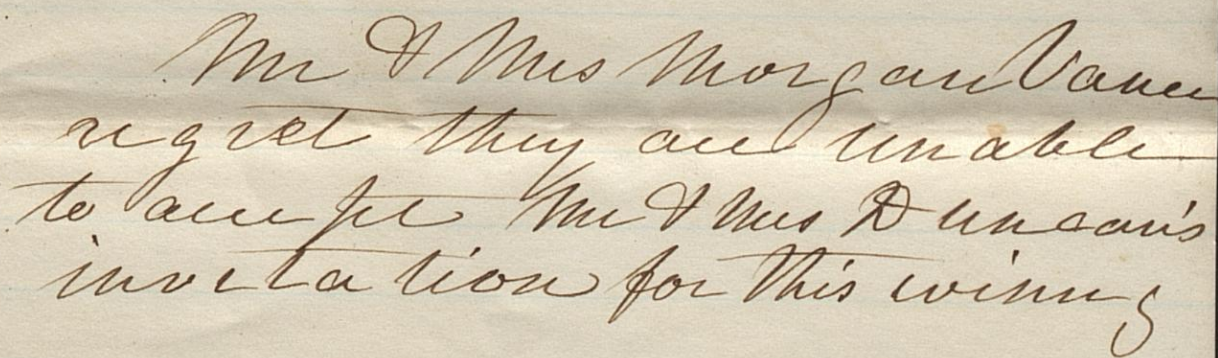 Mr & Mrs Morgan Vance
regret they are unable
to accept Mr & Mrs Duncan's
invitation for this evening